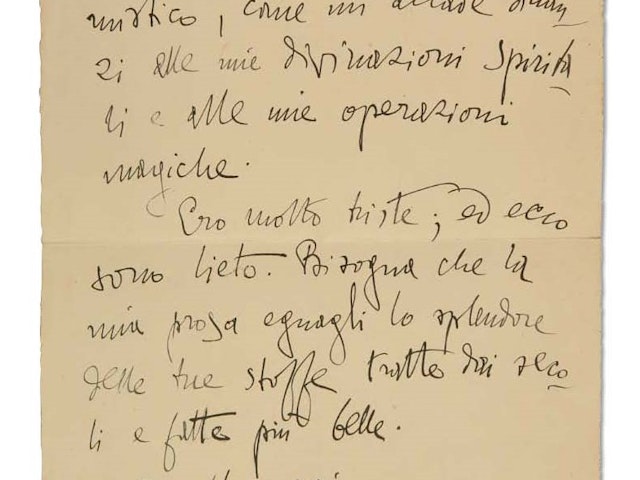 mistico, come mi accade dinan
zi alle mie divinazioni spirita
li e alle mie operazioni
magiche.
Ero molto triste; ed ecco
sono lieto. Bisogna che la
mia prosa eguagli lo splendore
delle tue stoffe tratte dai seco
li e fatte più belle.